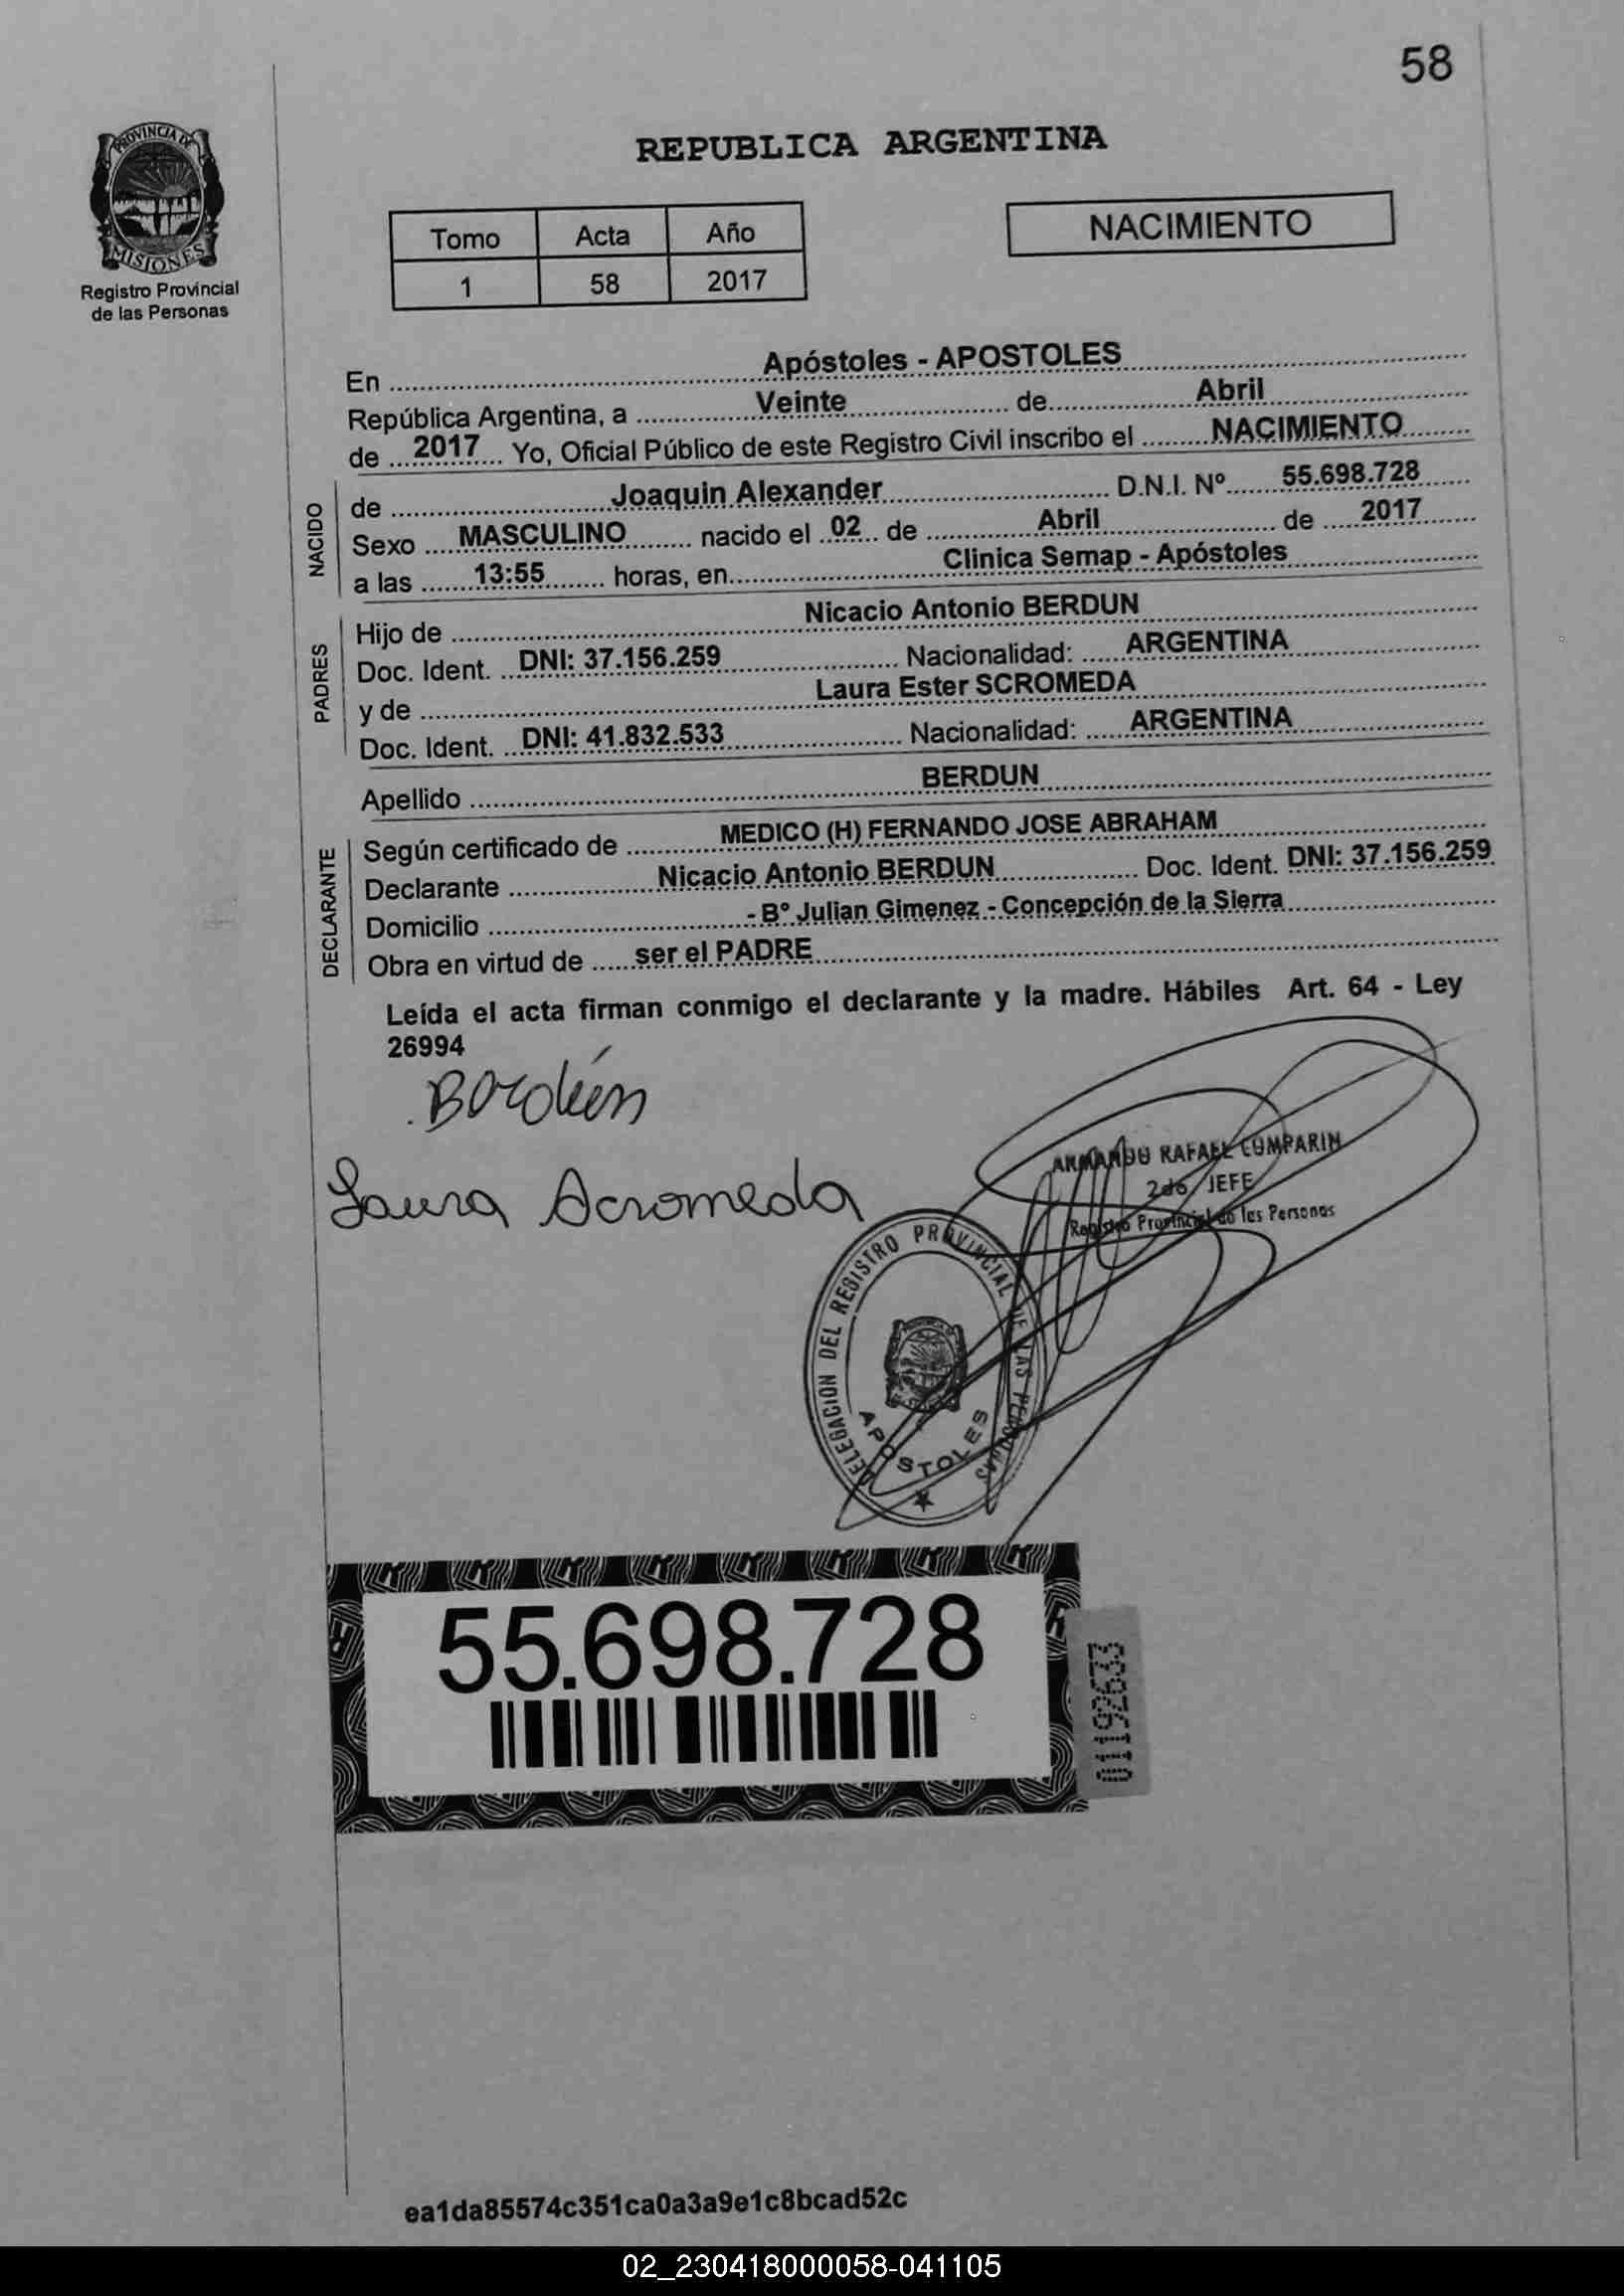 58
PROVINCIA DE
MISIONES
Registro Provincial
de las Personas
REPUBLICA ARGENTINA
Tomo Acta Año
1 58 2017
NACIMIENTO
En Apóstoles - APOSTOLES
República Argentina, a Veinte de Abril
de 2017 Yo, Oficial Público de este Registro Civil inscribo el NACIMIENTO
NACIDO
de Joaquin Alexander D.N.I. Nº 55.698.728
Sexo MASCULINO nacido el 02 de Abril de 2017
a las 13:55 horas, en Clinica Semap - Apóstoles
PADRES
Hijo de Nicacio Antonio BERDUN
Doc. Ident. DNI: 37.156.259 Nacionalidad: ARGENTINA
y de Laura Ester SCROMEDA
Doc. Ident. DNI: 41.832.533 Nacionalidad: ARGENTINA
Apellido BERDUN
DECLARANTE
Según certificado de MEDICO (H) FERNANDO JOSE ABRAHAM
Declarante Nicacio Antonio BERDUN Doc. Ident. DNI: 37.156.259
Domicilio - Bº Julian Gimenez - Concepción de la Sierra
Obra en virtud de ser el PADRE
Leída el acta firman conmigo el declarante y la madre. Hábiles Art. 64 - Ley
26994
Laura Scromeda
ARMANDO RAFAEL CUMPARIN
2do JEFE
Registro Provincial de las Personas
DELEGACION DEL REGISTRO PROVINCIAL DE LAS PERSONAS
APOSTOLES
55.698.728
01192633
ea1da85574c351ca0a3a9e1c8bcad52c
02_230418000058-041105